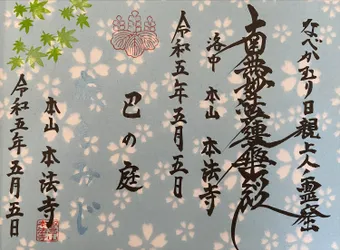 なべかむり日親上人霊窟
南無妙法蓮華経
洛中 本山 本法寺
令和五年五月五日
巴の庭
本山 本法寺
令和五年五月五日